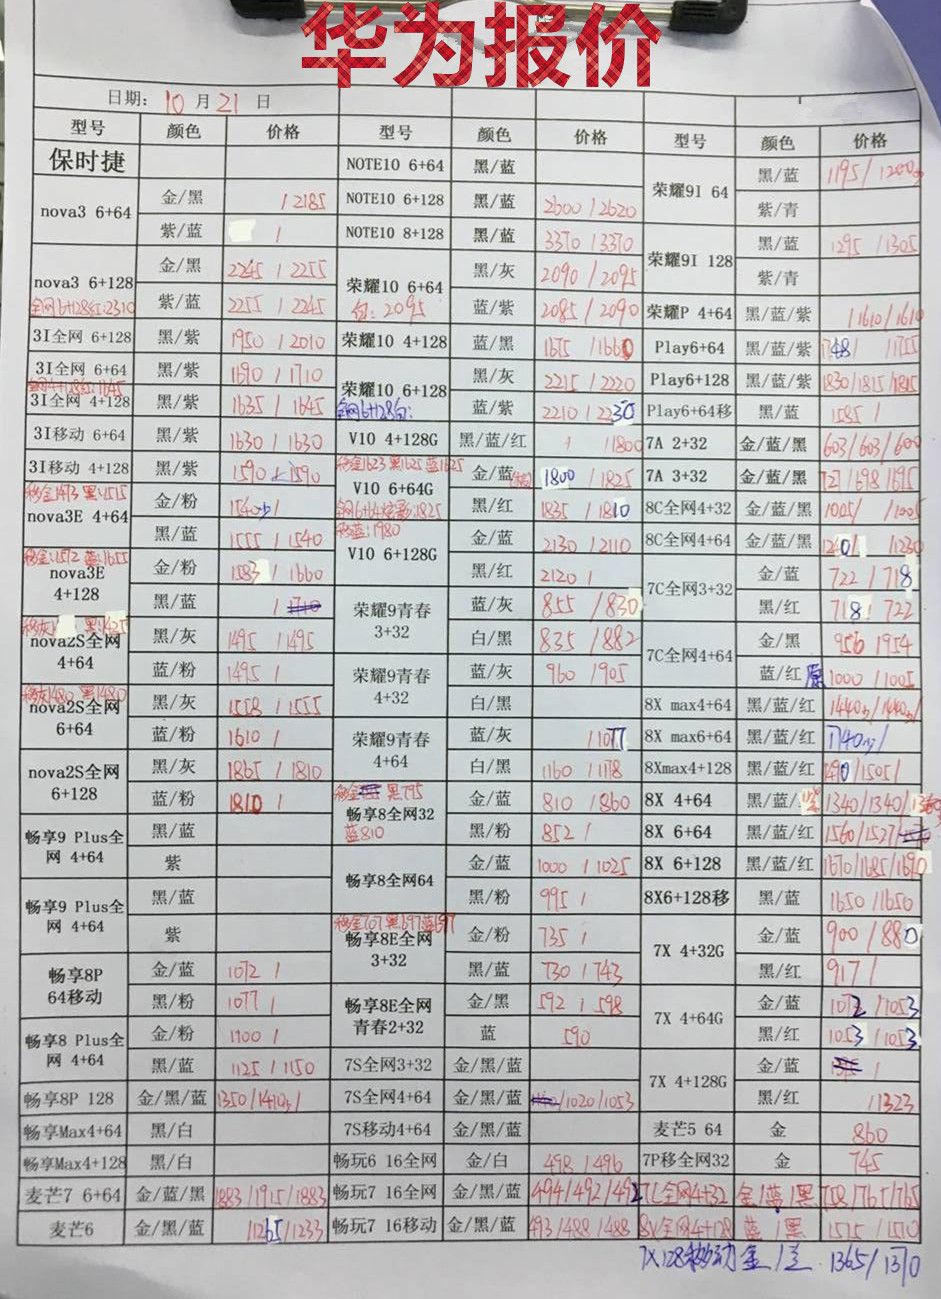 华为报价
日期: 10 月 21 日
型号 颜色 价格 型号 颜色 价格 型号 颜色 价格
保时捷 NOTE10 6+64 黑/蓝 荣耀9I 64 黑/蓝 1195/1200
nova3 6+64 金/黑 /2185 NOTE10 6+128 黑/蓝 2600/2620 紫/青
紫/蓝 / NOTE10 8+128 黑/蓝 3370/3370 荣耀9I 128 黑/蓝 1295/1305
nova3 6+128 金/黑 2245/2255 荣耀10 6+64 黑/灰 2090/2095 紫/青
全网6+128红:2310 紫/蓝 2255/2245 白:2095 蓝/紫 2085/2090 荣耀P 4+64 黑/蓝/紫 /1610/1610
3I全网 6+128 黑/紫 1950/2010 荣耀10 4+128 蓝/黑 1675/1660 Play6+64 黑/蓝/紫 1748/ /1755
3I全网 6+64 黑/紫 1690/1710 荣耀10 6+128 黑/灰 2215/2220 Play6+128 黑/蓝/紫 1830/1815/1815
3I全网 4+128 黑/紫 1635/1645 全网6+128白: 蓝/紫 2210/2230 Play6+64移 黑/蓝 1585/
3I移动 6+64 黑/紫 1630/1630 V10 4+128G 黑/蓝/红 /1800 7A 2+32 金/蓝/黑 603/603/600
移金1623 黑1625 蓝1625
3I移动 4+128 黑/紫 1590/1590 V10 6+64G 金/蓝 1800/1825 7A 3+32 金/蓝/黑 /698/695
移金1473 黑:1515
nova3E 4+64 金/粉 1540/ 黑/红 1835/1810 8C全网4+32 金/蓝/黑 1005/ /1005
移蓝:1980
黑/蓝 1555/1540 V10 6+128G 金/蓝 2130/2110 8C全网4+64 金/蓝/黑 /1230
移金:1572 蓝:1655
nova3E 4+128 金/粉 1583/1660 黑/红 2120/ 7C全网3+32 金/蓝 722/718
黑/蓝 / 荣耀9青春 3+32 蓝/灰 855/830 黑/红 718/722
nova2S全网 4+64 黑/灰 1495/1495 白/黑 835/882 7C全网4+64 金/黑 956/954
蓝/粉 1495/ 荣耀9青春 4+32 蓝/灰 960/905 蓝/红 1000/1005
移灰1480 黑1480
nova2S全网 6+64 黑/灰 1558/1555 白/黑 8X max4+64 黑/蓝/红 1440/1440
蓝/粉 1610/ 荣耀9青春 4+64 蓝/灰 /1077 8X max6+64 黑/蓝/红 1740/
nova2S全网 6+128 黑/灰 1865/1810 白/黑 1160/1178 8Xmax4+128 黑/蓝/红 1490/1505/
移金 黑795
蓝/粉 1810/ 畅享8全网32 金/蓝 810/860 8X 4+64 黑/蓝/ 1340/1340/1360
蓝810
畅享9 Plus全网 4+64 黑/蓝 黑/粉 852/ 8X 6+64 黑/蓝/红 1560/1527/
紫 畅享8全网64 金/蓝 1000/1025 8X 6+128 黑/蓝/红 1670/1685/1690
畅享9 Plus全网 4+64 黑/蓝 黑/粉 995/ 8X6+128移 黑/蓝 1650/1650
移金707 黑697 蓝697
紫 畅享8E全网 3+32 金/粉 735/ 7X 4+32G 金/蓝 900/880
畅享8P 64移动 金/蓝 1072/ 黑/蓝 730/743 黑/红 917/
黑/粉 1077/ 畅享8E全网 青春2+32 金/黑 592/598 7X 4+64G 金/蓝 1072/1053
畅享8 Plus全网 4+64 金/粉 1100/ 蓝 590 黑/红 1053/1053
黑/蓝 1125/1150 7S全网3+32 金/黑/蓝 7X 4+128G 金/蓝 /
畅享8P 128 金/黑/蓝 1350/1410/ 7S全网4+64 金/黑/蓝 /1020/1053 黑/红 /1323
畅享Max4+64 黑/白 7S移动4+64 金/黑/蓝 麦芒5 64 金 860
畅享Max4+128 黑/白 畅玩6 16全网 金/白 498/496 7P移全网32 金 745
麦芒7 6+64 金/蓝/黑 1883/1915/1883 畅玩7 16全网 金/黑/蓝 494/492/492 7C全网4+32 金/蓝/黑 758/765/765
麦芒6 金/黑/蓝 /1265/1233 畅玩7 16移动 金/黑/蓝 493/488/488 8X全网4+128 蓝/黑 1515/1510
7X128移动 金/ 1365/1370